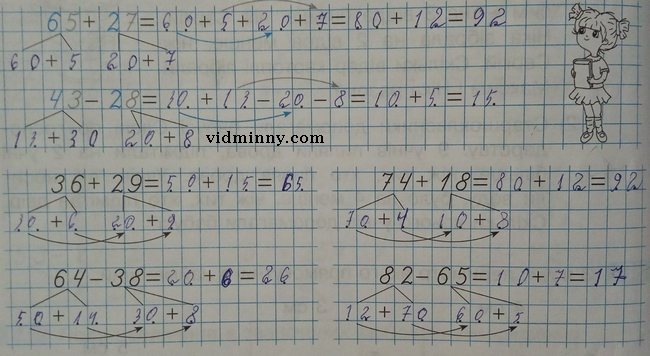 65+27=60+5+20+7=80+12=92
60+5 20+7
43-28=30+13-20-8=10+5=15.
13+30 20+8
vidminny.com
36+29=50+15=65.
30+6 20+9
74+18=80+12=92
70+4 10+8
64-38=20+6=26
50+14 30+8
82-65=10+7=17
12+70 60+5